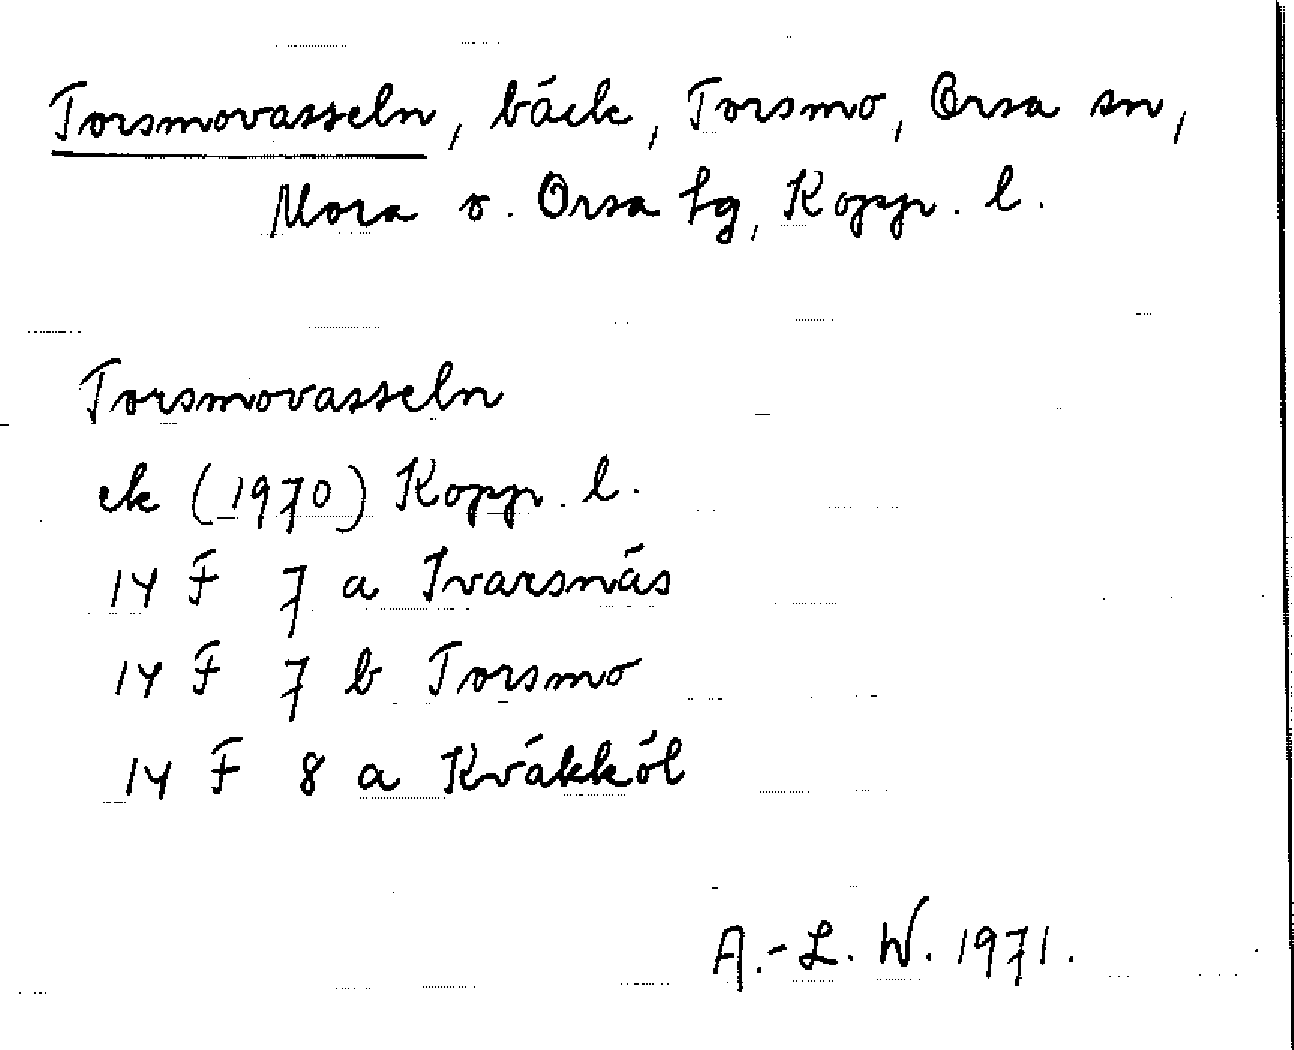 Torsmovasseln, bäck, Torsmo, Orsa sn,
Mora o. Orsa tg, Kopp. l.
Torsmovasseln
ek (1970) Kopp. l.
14 F 7 a Ivarsnäs
14 F 7 b Torsmo
14 F 8 a Kväkköl
A.-L. W. 1971.